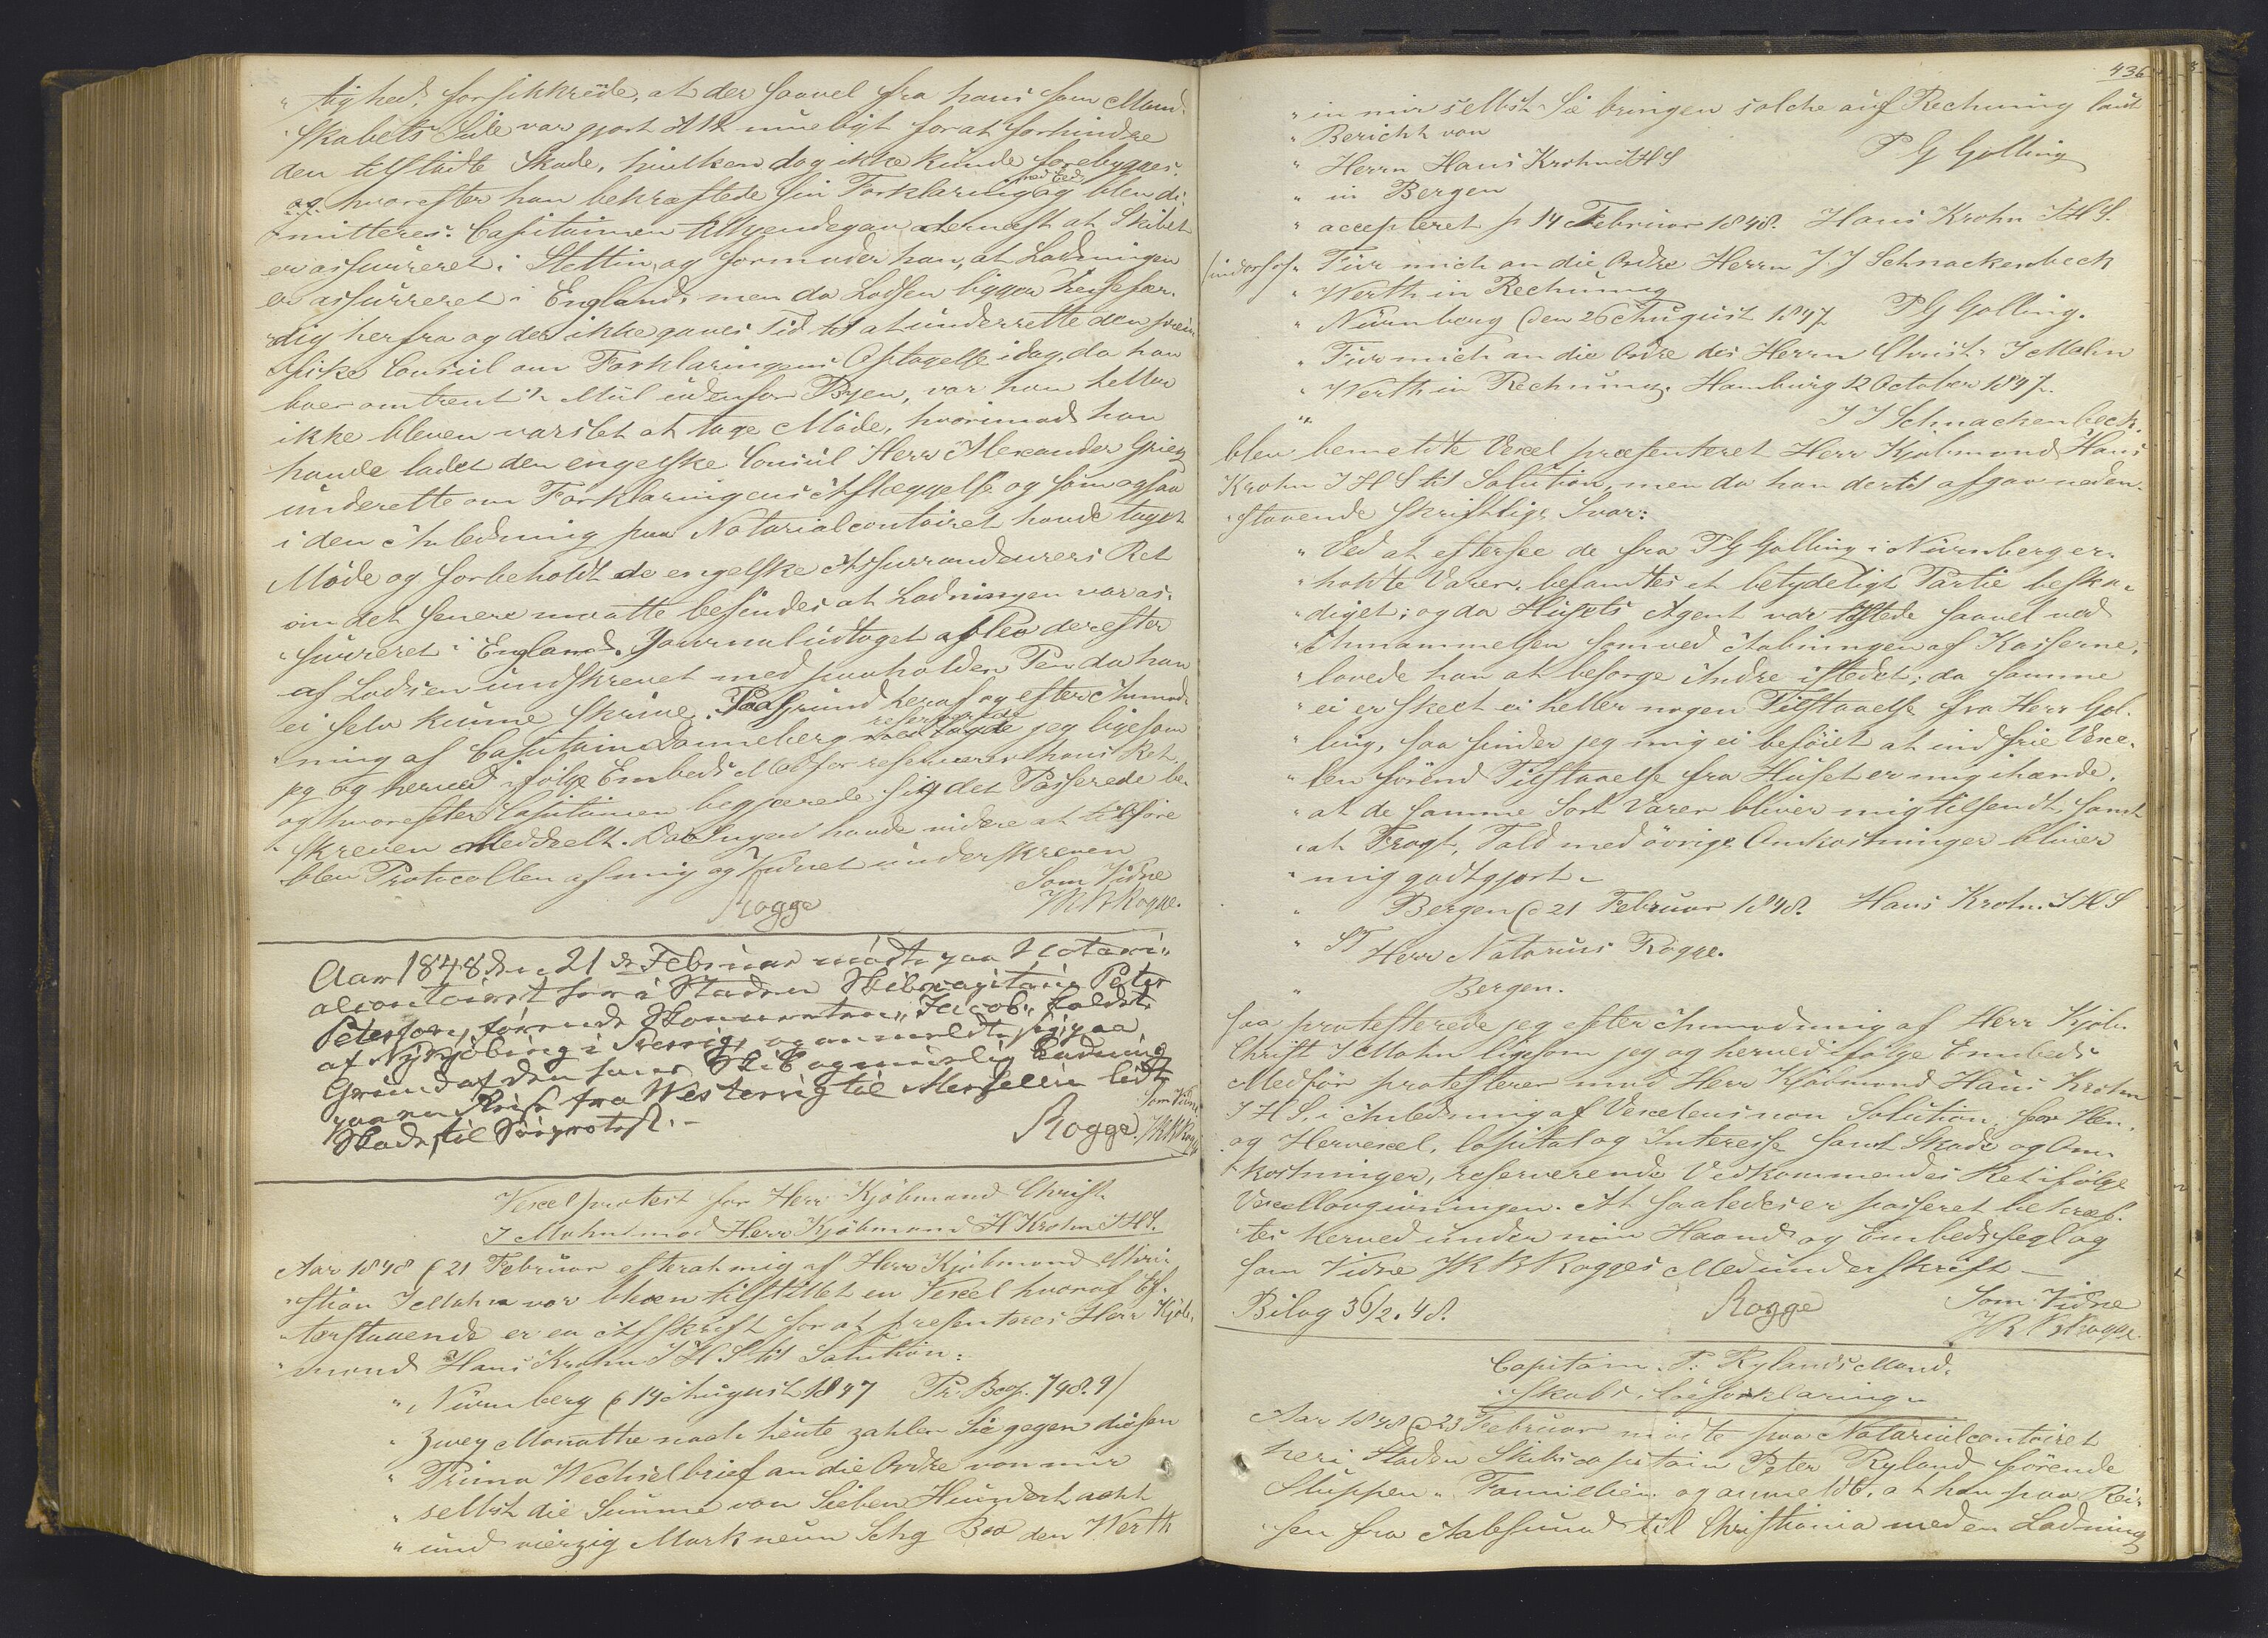 "tighed, forsikkrede, at der saavel fra hans som Mand-
"skabets Side var gjort Alt mueligt for at forhindre
den tilstødte Skade, hvilken dog ikke kunde forebygges.
og hvorefter han bekræftede sin Forklaring med Eed og blev di-
mitteret. Capitainen tilkjendegav dernæst at Skibet
er assurreret i Stettin, og formoder han, at Ladningen
er assurreret i England, men da Lodsen ligger reisefær-
dig herfra og der ikke gaves Tid til at underrette den preus-
siske Consul om Forklaringens Optagelse idag, da han
boer omtrent ½ Miil udenfor Byen, var han heller
ikke bleven varslet at tage Møde, hvorimod han
havde ladet den engelske Consul Herr Alexander Grieg
underrette om Forklaringens Aflæggelse og som ogsaa
i den Anledning paa Notarialcontoiret havde taget
Møde og forbeholdt de engelske Assurrandeurers Ret
om det senere maatte befindes at Ladningen var as-
surreret i England. Journaludtoget blev derefter
af Lodsen undskrevet med paaholden Pen da han
ei selv kunne skrive. Paa Grund heraf og efter Anmod-
ning af Capitain Danneberg reserverede jeg ligesom
jeg og herved ifølge Embeds Medfør reserverer hans Ret,
og hvorefter Capitainen begjærede sig det Passerede be-
skreven meddeelt. Da Ingen havde videre at tilføre
blev Protocollen af mig og Vidnet underskreven
Som Vidne
Rogge JKB Rogge.
Aar 1848 den 21 de Februar mødte paa Notari-
alcontoiret her i Staden Skibscapitain Peter
Peterson, førende Skonnerten "Jacob" kaldet
af Nykjøbing i Sverrig, og anmeldte sig paa
Grund af den hans Skib og muelig Ladning
paa en Reise fra Westerwig til Marseille lidte
Skade, til Søeprotest. -
Som Vidne
Rogge JKB Rogge
Vexelprotest for Herr Kjøbmand Christ.
J Mohn mod Herr Kjøbmand H Krohn JHS.
Aar 1848 d 21 Februar efterat mig af Herr Kjøbmand Chri-
"stian J Mohn var bleven tilstillet en Vexel hvoraf Ef-
"terstaaende er en Afskrift for at presenteres Herr Kjøb-
"mand Hans Krohn JHS til Solution:
" Nürnberg d 14 August 1847 Pr. Bco/. 748.9/
" Zwey Monathe nach heute zahlen Sie gegen diesen
" Prima Wechselbrief an die Ordre von mir
" selbst die Summe von Sieben Hundert acht
" und vierzig Mark neun Schg Bco den Werth
436
" in mir selbst. Sie bringen solche auf Rechnung laut
" Bericht von
" Herrn Hans Krohn JHS P G Golling
" in Bergen
" accepteret p 14 Februar 1848. Hans Krohn JHS.
Für mich an die Ordre Herrn J. J Schnackenbeck
" Werth in Rechnung
" Nürnberg den 26 August 1847 P G Golling.
" Für mich an die Ordre des Herrn Christ. J Mohn
" Werth in Rechnung. Hamburg 12 October 1847.
" J J Schnackenbeck.
blev bemeldte Vexel præsenteret Herr Kjøbmand Hans
Krohn JHS til Solution, men da han dertil afgav neden-
"staaende skriftlige Svar:
" Ved at eftersee de fra P G Golling i Nürnberg er-
" holdte Varer, befandtes et betydeligt Partie beska-
" diget; og da Husets Agent var tilstede saavel ved
" Annammelsen som ved Aabningen af Kasserne,
" lovede han at besørge Andre istedet; da samme
" ei er skeet ei heller nogen Tilstaaelse fra Herr Gol-
" ling, saa finder jeg mig ei beføiet at indfrie Vexe-
" len førend Tilstaaelse fra Huset er mig ihænde,
" at de samme Sort Varer bliver mig tilsendt, samt
" at Fragt, Told med øvrige Omkostninger bliver
" mig godtgjort.
" Bergen d 21 Februar 1848. Hans Krohn. JHS
" ST
Herr Notarius Rogge.
" Bergen.
saa protesterede jeg efter Anmodning af Herr Kjøbm
Christ J Mohn ligesom jeg og herved ifølge Embeds
Medfør protesterer mod Herr Kjøbmand Hans Krohn
JHS i Anledning af Vexelens non Solution, for Hen-
og Hervexel, Capital og Interesse samt Skade og Om-
"kostninger, reserverende Vedkommendes Ret ifølge
Vexellovgivningen. At saaledes er passeret bekræf-
"tes herved under min Haand og Embedssegl og
som Vidne JKB Rogges Medunderskrift -
Bilag 36/2.48. Rogge Som Vidne
JKB Rogge.
Capitain P. Rylands Mand-
skabs Søeforklaring.
Aar 1848 d 23 Februar mødte paa Notarialcontoiret
her i Staden Skibscapitain Peter Ryland førende
Sluppen "Familien" og anmeldte, at han paa Rei-
sen fra Aalesund til Christiania med en Ladning